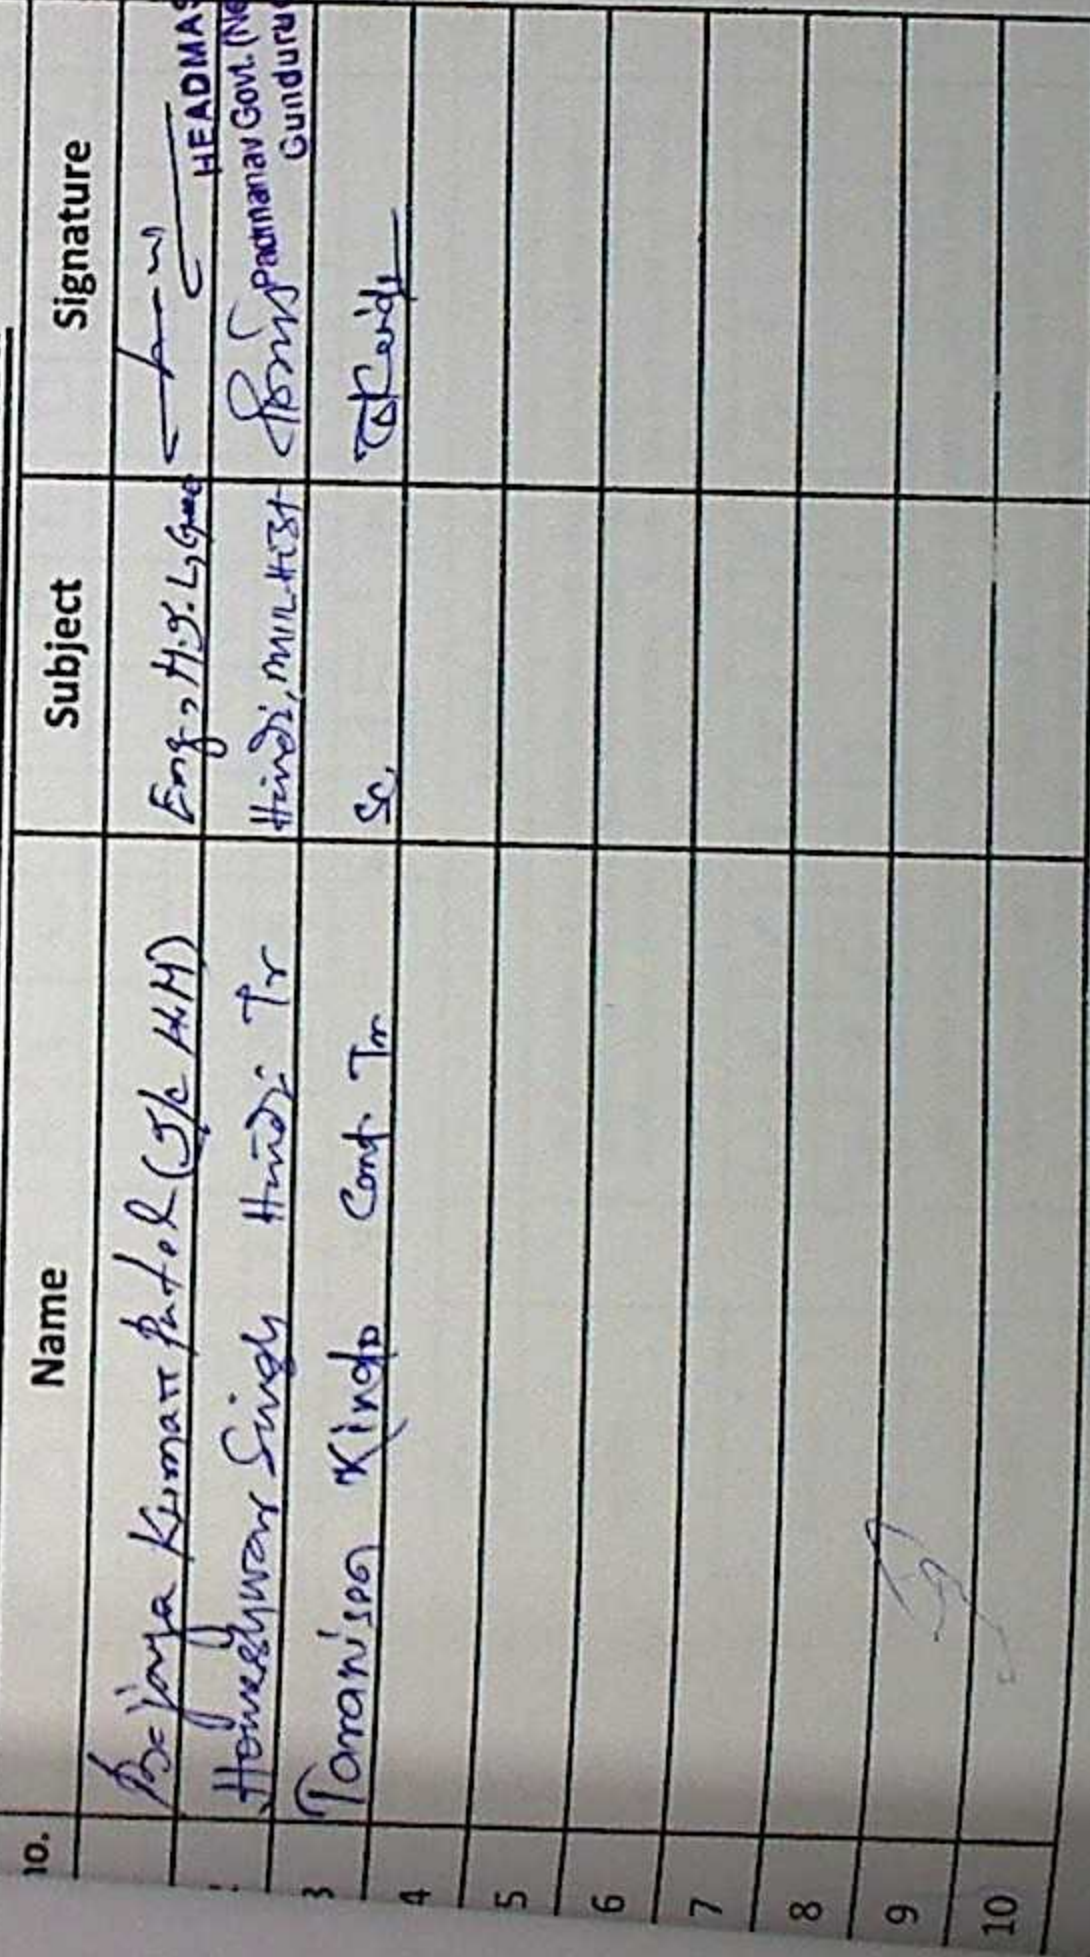 Name Subject Signature
Bijaya Kumar Patel (I/c H.M) Eng,
HEADMAS
Homeshwar Singh Hindi Tr Hindi, MIL Hist
Padmanav Govt. (Ne
Gunduru
3 Taranisen Kindo Cont. Tr Sc,
4
5
6
7
8
9
10